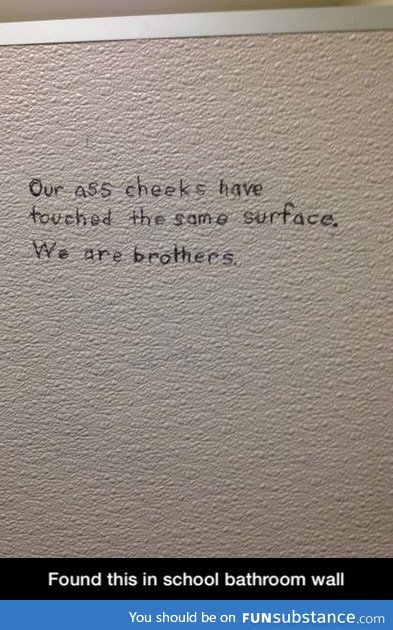 Our ass cheeks have
touched the same surface.
We are brothers.
Found this in school bathroom wall
You should be on FUNsubstance.com